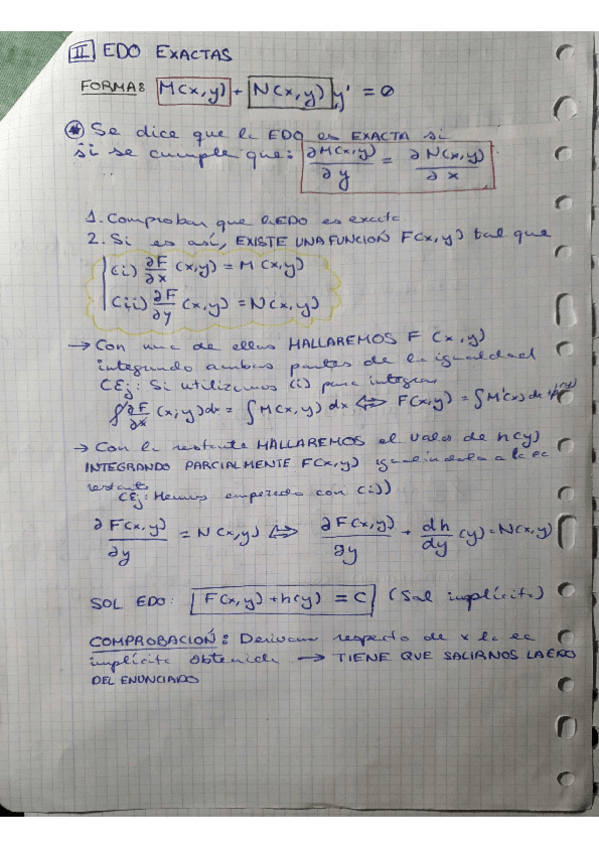 II EDO EXACTAS
FORMA: M(x,y) + N(x,y) y' = 0
* Se dice que la EDO es EXACTA si
si se cumple que: ∂M(x,y)/∂y = ∂N(x,y)/∂x
1. Comprobar que la EDO es exacta
2. Si es así, EXISTE UNA FUNCIÓN F(x,y) tal que
(i) ∂F/∂x (x,y) = M(x,y)
(ii) ∂F/∂y (x,y) = N(x,y)
→ Con una de ellas HALLAREMOS F (x,y)
integrando ambas partes de la igualdad
(Ej: Si utilizamos (i) para integrar
∫∂F/∂x (x,y)dx = ∫M(x,y) dx ⟺ F(x,y) = ∫M(x)dx + h(y)
→ Con la restante HALLAREMOS el valor de h(y)
INTEGRANDO PARCIALMENTE F(x,y) igualándola a la ec
restante
(Ej: Hemos empezado con (i))
∂F(x,y)/∂y = N(x,y) ⟺ ∂F(x,y)/∂y + dh/dy (y) = N(x,y)
SOL EDO: F(x,y) + h(y) = C (Sol implícita)
COMPROBACIÓN: Derivamos respecto de x la ec
implícita obtenida → TIENE QUE SALIRNOS LA EDO
DEL ENUNCIADO